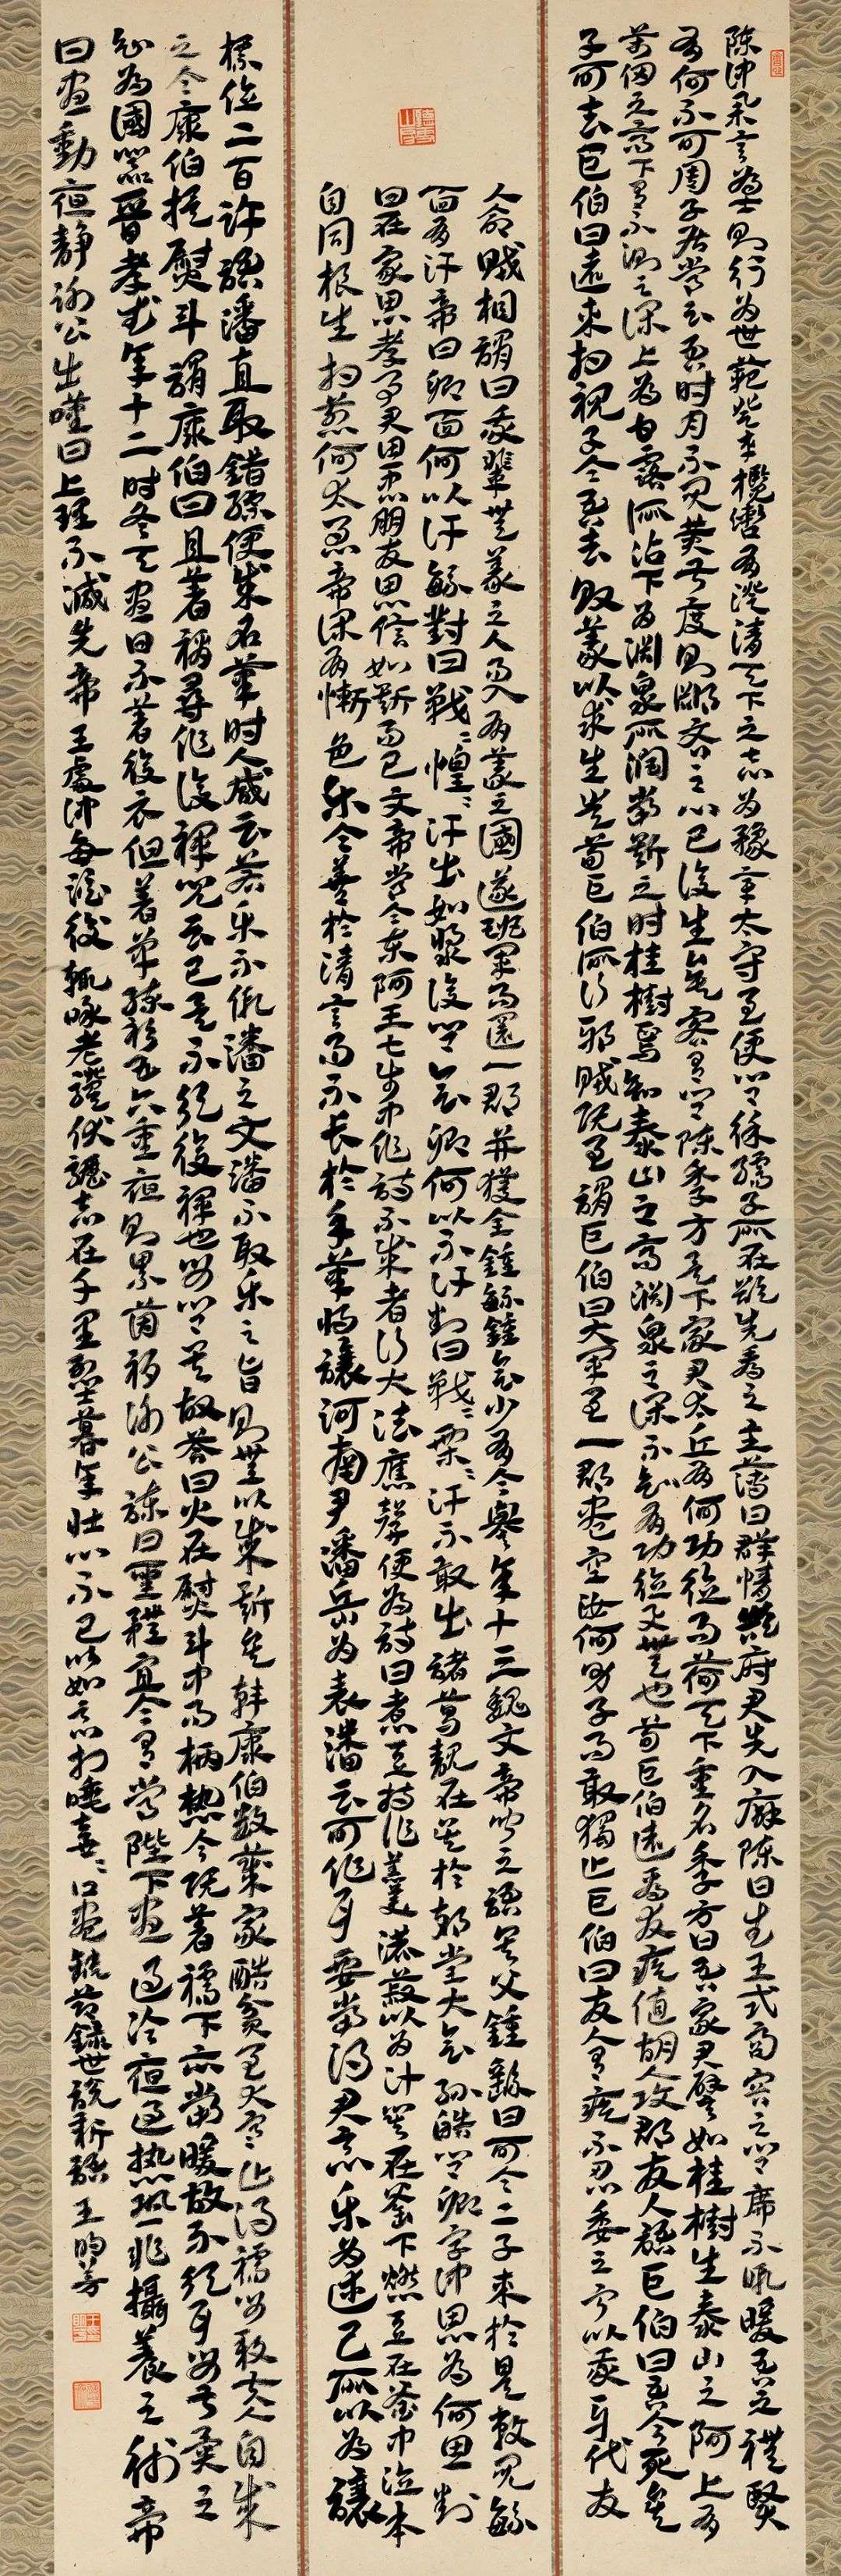 陳仲舉言為士則行為世範登車攬轡有澄清天下之志為豫章太守至便問徐孺子所在欲先看之主簿曰群情欲府君先入廨陳曰武王式商容之閭席不暇暖吾之禮賢
有何不可周子居常云吾時月不見黃叔度則鄙吝之心已復生矣客有問陳季方足下家君太丘有何功德而荷天下重名季方曰吾家君譬如桂樹生泰山之阿上有
萬仞之高下有不測之深上為甘露所沾下為淵泉所潤當斯之時桂樹焉知泰山之高淵泉之深不知有功德與無也荀巨伯遠看友疾值胡人攻郡友人語巨伯曰吾今死矣
子可去巨伯曰遠來相視子令吾去敗義以求生豈荀巨伯所行邪賊既至謂巨伯曰大軍至一郡盡空汝何男子而敢獨止巨伯曰友人有疾不忍委之寧以我身代友
人命賊相謂曰我輩無義之人而入有義之國遂班軍而還一郡并獲全鍾毓鍾會少有令譽年十三魏文帝聞之語其父鍾繇曰可令二子來於是敕見毓
面有汗帝曰卿面何以汗毓對曰戰戰惶惶汗出如漿復問會卿何以不汗對曰戰戰栗栗汗不敢出諸葛靚在吳於朝堂大會孫皓問卿字仲思為何思對
曰在家思孝事君思忠朋友思信如斯而已文帝嘗令東阿王七步中作詩不成者行大法應聲便為詩曰煮豆持作羹漉菽以為汁萁在釜下燃豆在釜中泣本
自同根生相煎何太急帝深有慚色樂令善於清言而不長於手筆將讓河南尹潘岳為表潘云可作耳要當得君意樂為述己所以為讓
標位二百許語潘直取錯綜便成名筆時人咸云若樂不假潘之文潘不取樂之旨則無以成斯矣韓康伯數歲家酷貧至大寒止得襦母殷夫人自成
之令康伯捉熨斗謂康伯曰且著襦尋作復褌兒云已足不須復褌也母問其故答曰火在熨斗中而柄熱今既著襦下亦當暖故不須耳母甚異之
知為國器晉孝武年十二時冬天晝日不著復衣但著單練衫五六重夜則累茵褥謝公諫曰聖體宜令有常陛下晝過冷夜過熱恐非攝養之術帝
曰晝動夜靜謝公出嘆曰上理不減先帝王處仲每酒後輒詠老驥伏櫪志在千里烈士暮年壯心不已以如意打唾壺壺口盡缺節錄世說新語王